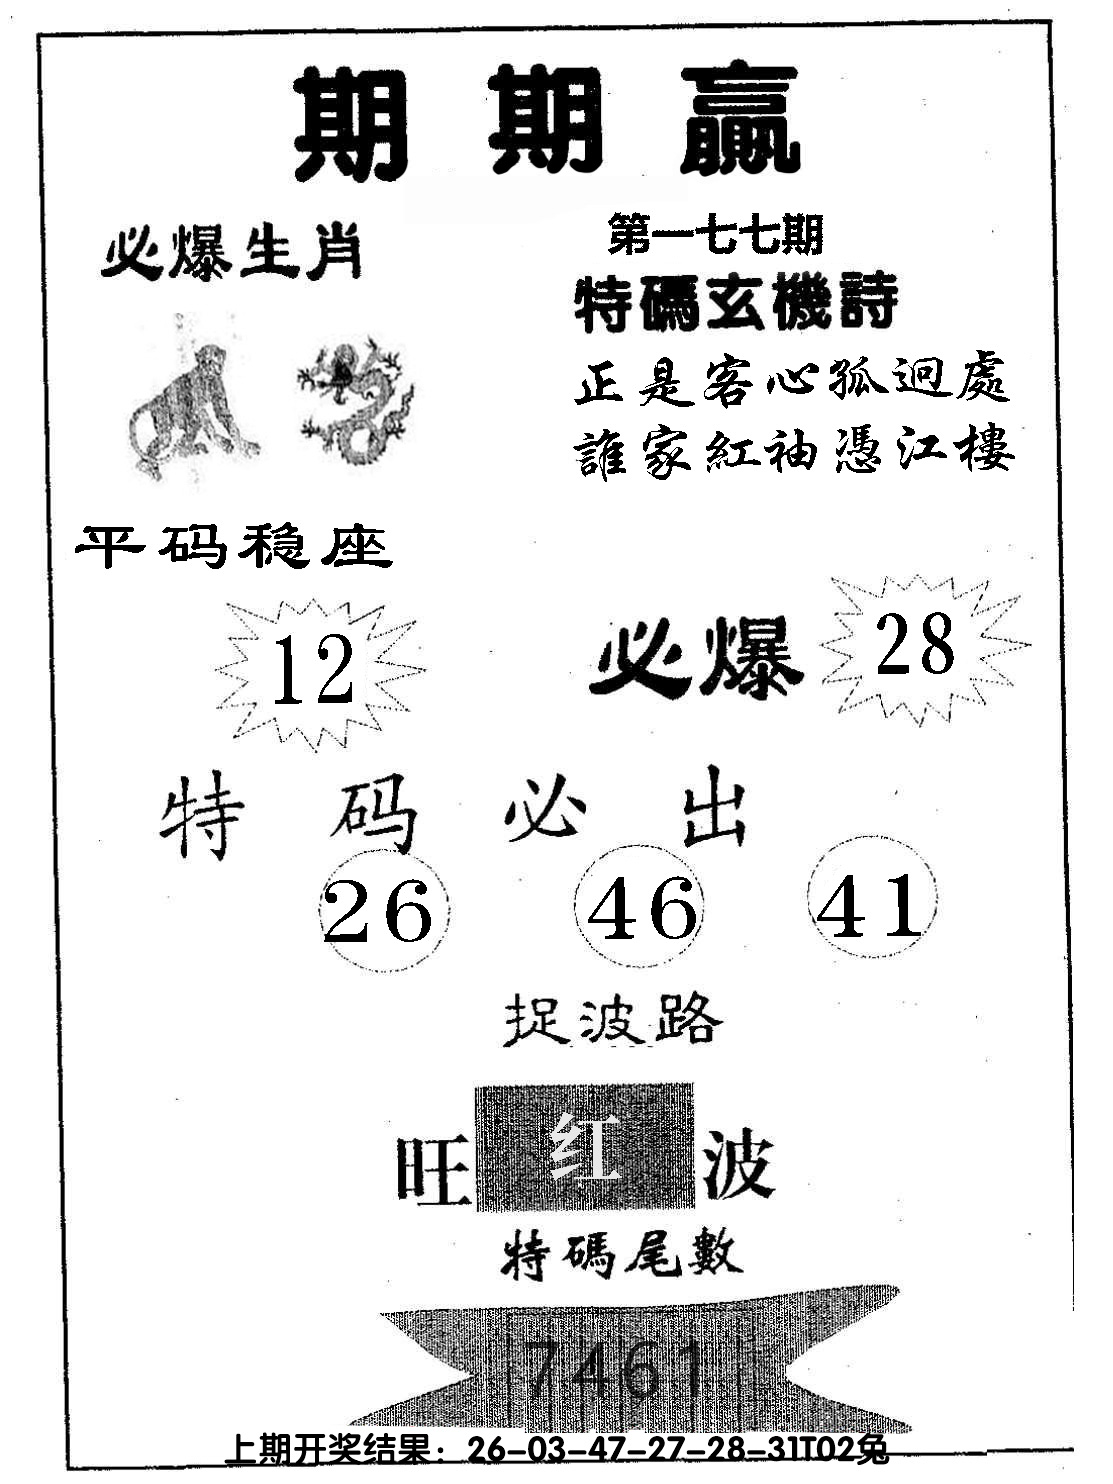 期期赢
必爆生肖
第一七七期
特碼玄機詩
正是客心孤迥處
誰家紅袖憑江樓
平码稳座
12
必爆 28
特码必出
26 46 41
捉波路
旺红波
特碼尾數
7461
上期开奖结果：26-03-47-27-28-31T02兔